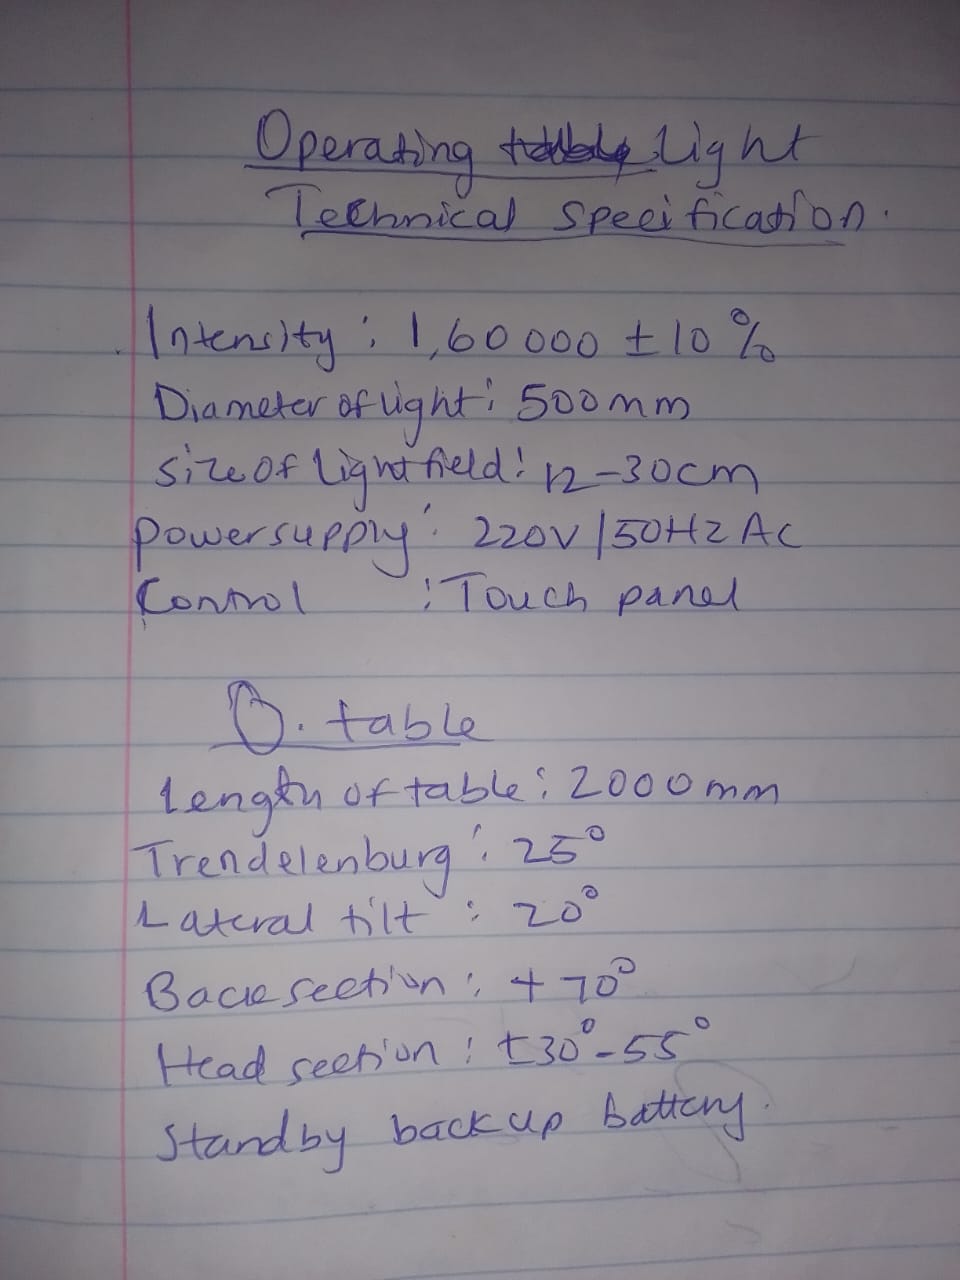 Operating Light
Technical Specification.
Intensity : 1,60 000 ± 10 %
Diameter of light : 500mm
Size of Light field : 12-30cm
power supply : 220V/50HZ AC
Control : Touch panel
O. table
Length of table : 2000mm
Trendelenburg : 25°
Lateral tilt : 20°
Back section : + 70°
Head section : ±30°-55°
Standby back up battery.